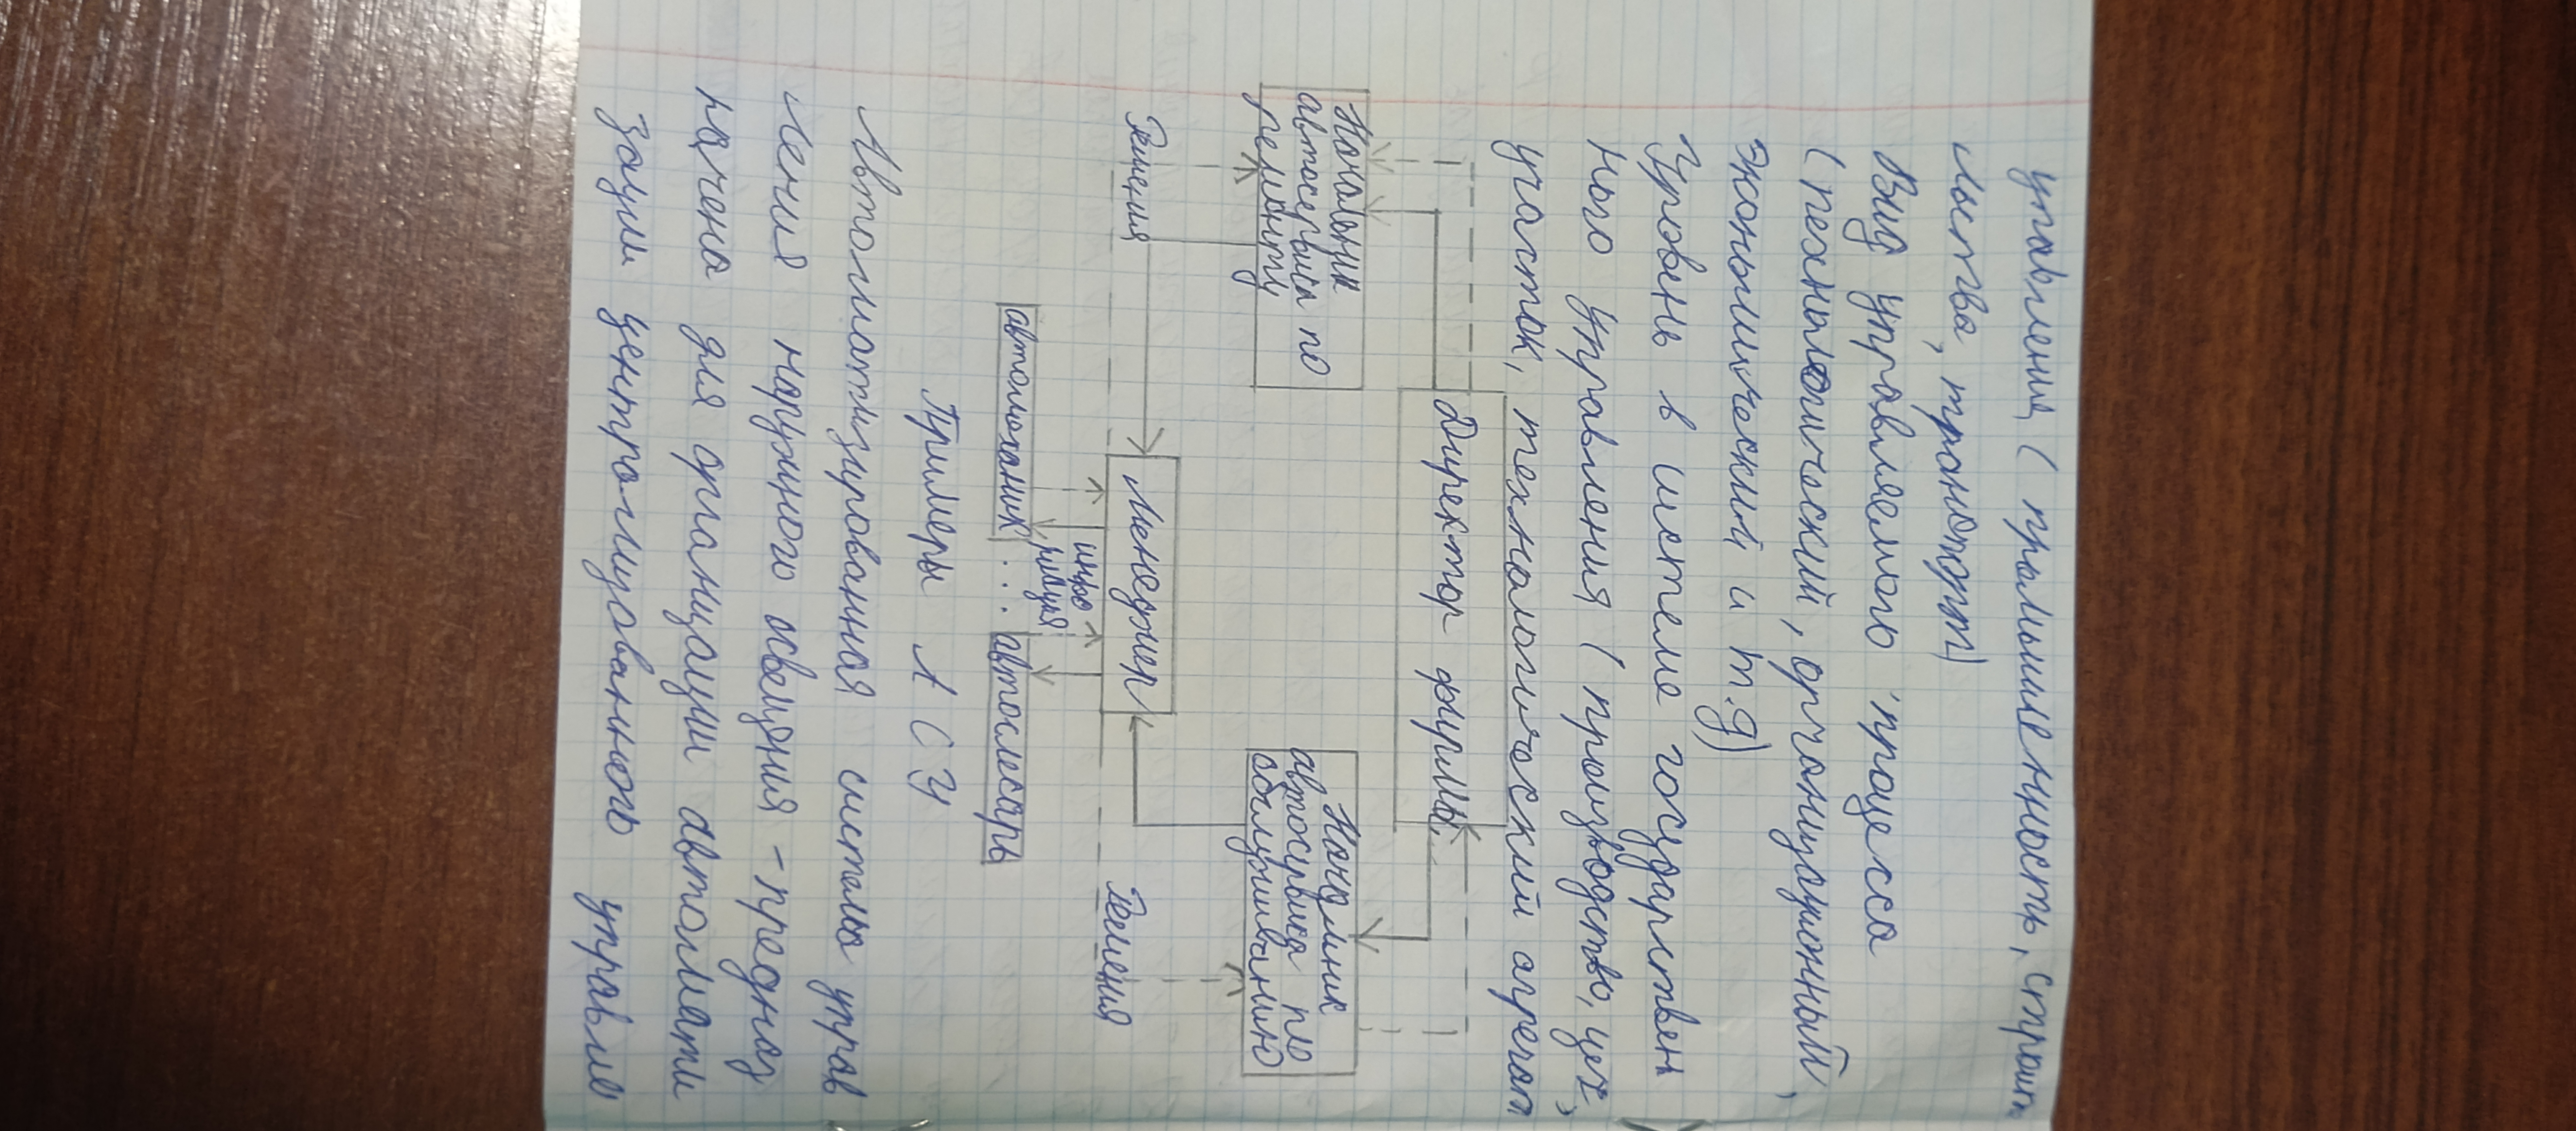 управления ( промышленность, строит
льства, транспорт)
Вид управляемого процесса
( технологический, организационный,
экономический и т.д)
Уровень в системе государствен
ного управления ( производство, цех,
участок, технологический агрегат
Директор фирмы.
Начальник автосервиса по ремонту
Начальник автосервиса по обслуживанию
Решения
Менеджер
Решения
инфо
рмация
автомеханик ... автослесарь
Примеры АСУ
Автоматизированная система управ
ления наружного освещения - предназ
начена для организации автомати
зации централизованного управле